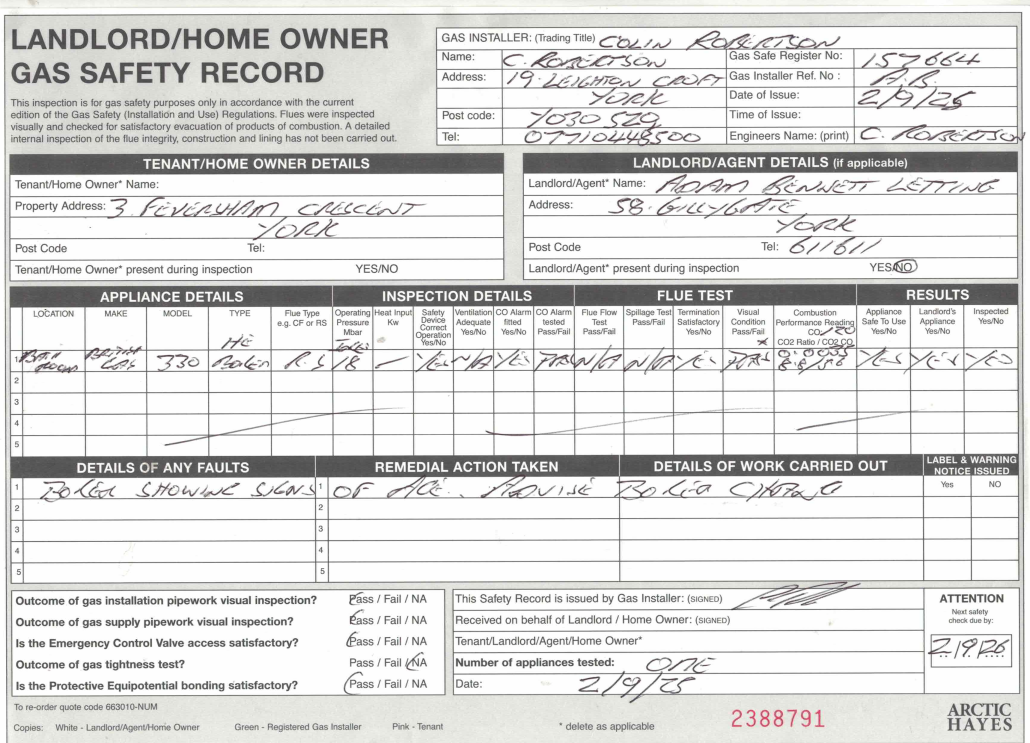 LANDLORD/HOME OWNER
GAS SAFETY RECORD
This inspection is for gas safety purposes only in accordance with the current
edition of the Gas Safety (Installation and Use) Regulations. Flues were inspected
visually and checked for satisfactory evacuation of products of combustion. A detailed
internal inspection of the flue integrity, construction and lining has not been carried out.
GAS INSTALLER: (Trading Title) COLIN ROBERTSON
Name: C. ROBERTSON Gas Safe Register No: 157664
Address: 19. LEIGHTON CROFT Gas Installer Ref. No : A.B.
YORK Date of Issue: 2/9/25
Post code: YO30 5ZG Time of Issue:
Tel: 07710448500 Engineers Name: (print) C. ROBERTSON
TENANT/HOME OWNER DETAILS
Tenant/Home Owner* Name:
Property Address: 3. FEVERSHAM CRESCENT
YORK
Post Code Tel:
Tenant/Home Owner* present during inspection YES/NO
LANDLORD/AGENT DETAILS (if applicable)
Landlord/Agent* Name: ADAM BENNETT LETTING
Address: 58. GILLYGATE
YORK
Post Code Tel: 611611
Landlord/Agent* present during inspection YES/NO
APPLIANCE DETAILS INSPECTION DETAILS FLUE TEST RESULTS
LOCATION MAKE MODEL TYPE Flue Type e.g. CF or RS Operating Pressure Mbar Heat Input Kw Safety Device Correct Operation Yes/No Ventilation Adequate Yes/No CO Alarm fitted Yes/No CO Alarm tested Pass/Fail Flue Flow Test Pass/Fail Spillage Test Pass/Fail Termination Satisfactory Yes/No Visual Condition Pass/Fail Combustion Performance Reading CO2 Ratio / CO2 CO Appliance Safe To Use Yes/No Landlord's Appliance Yes/No Inspected Yes/No
HE
BATH ROOM BRITISH GAS 330 BOILER R.S 18 - YES N/A YES PAS N/A N/A YES PAS YES YES YES
2
3
4
5
DETAILS OF ANY FAULTS REMEDIAL ACTION TAKEN DETAILS OF WORK CARRIED OUT LABEL & WARNING NOTICE ISSUED
Yes NO
1 BOILER SHOWING SIGNS 1 OF AGE. ADVISE BOILER CHANGE
2 2
3 3
4 4
5 5
Outcome of gas installation pipework visual inspection? Pass / Fail / NA
Outcome of gas supply pipework visual inspection? Pass / Fail / NA
Is the Emergency Control Valve access satisfactory? Pass / Fail / NA
Outcome of gas tightness test? Pass / Fail / NA
Is the Protective Equipotential bonding satisfactory? Pass / Fail / NA
This Safety Record is issued by Gas Installer: (SIGNED)
Received on behalf of Landlord / Home Owner: (SIGNED)
Tenant/Landlord/Agent/Home Owner*
Number of appliances tested: ONE
Date: 2/9/25
ATTENTION
Next safety
check due by:
2/9/26
To re-order quote code 663010-NUM
Copies: White - Landlord/Agent/Home Owner Green - Registered Gas Installer Pink - Tenant * delete as applicable 2388791
ARCTIC
HAYES